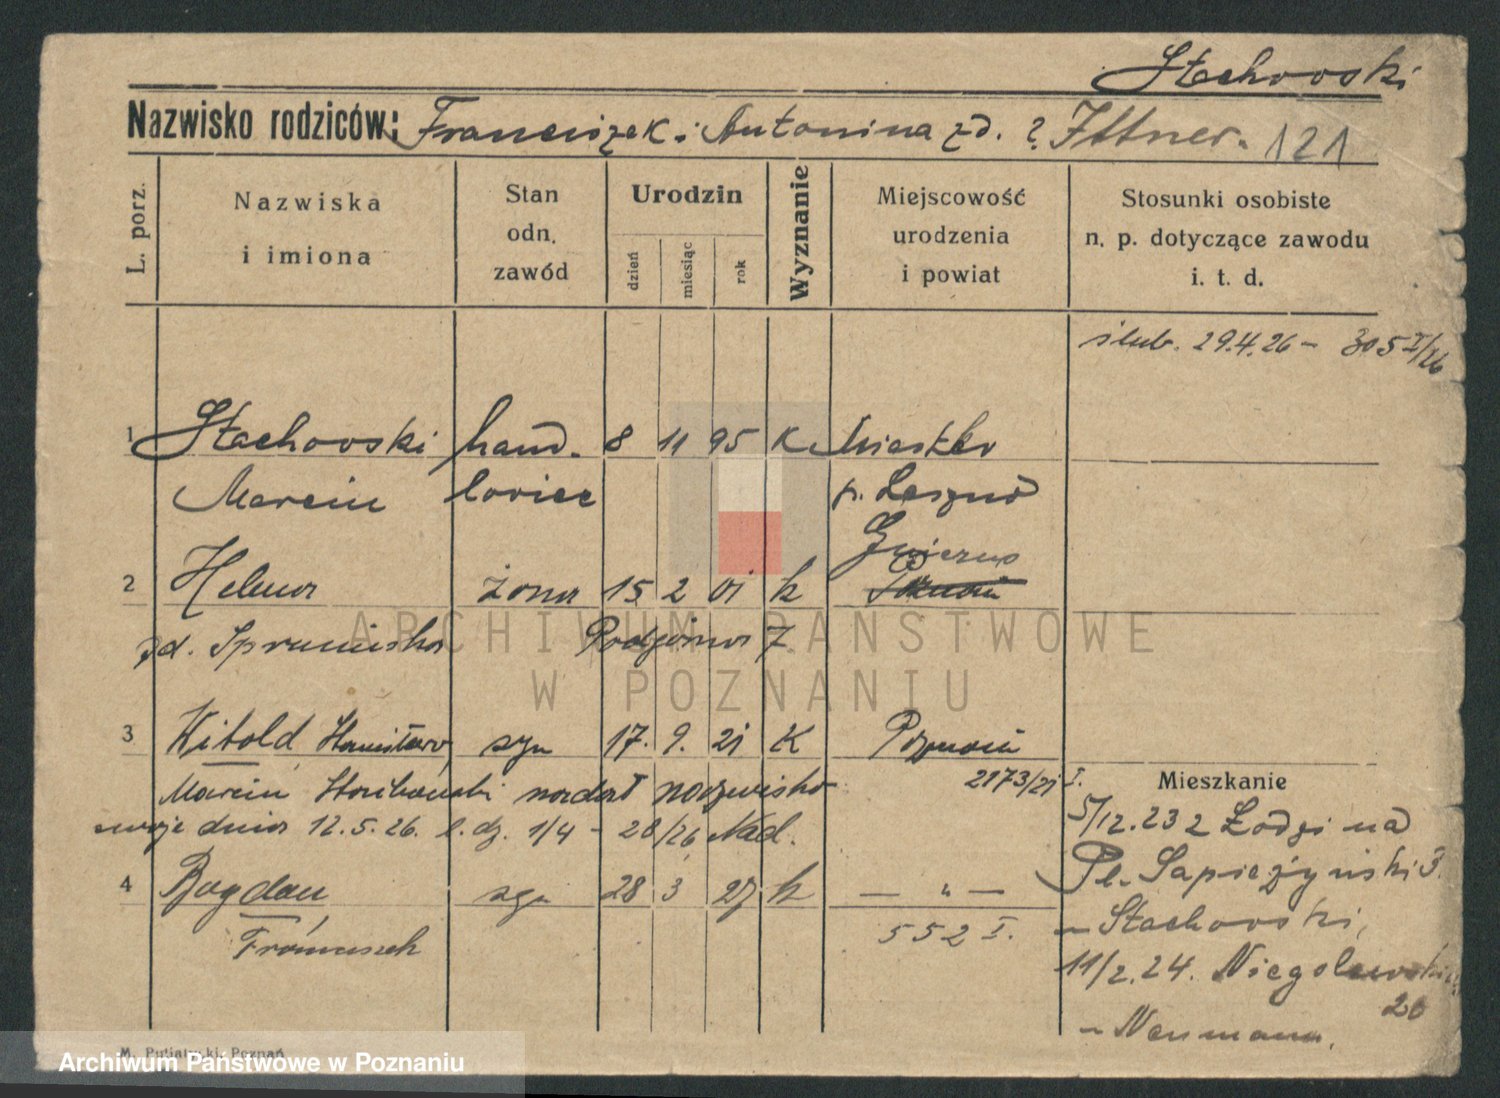 Stachowski
Nazwisko rodziców: Franciszek i Antonina zd. ? Ittner. 121
L. porz.
Nazwiska i imiona
Stan odn. zawód
Urodzin
dzień miesiąc rok
Wyznanie
Miejscowość urodzenia i powiat
Stosunki osobiste n. p. dotyczące zawodu i. t. d.
ślub. 29.4.26 - 305 I/26
1 Stachowski hand- 8 11 95 K
Marcin lowiec p. Leszno
Gniezno
2 Helena żona 15 2 01 k Poznań
zd. Podgórna 7
3 Witold Stanisław syn 17. 9. 21 K Poznań
Marcin nadał nazwisko 2173/21 I.
swoje dnia 12.5.26. l. dz. 1/4 - 28/26 Nad.
4 Bogdan syn 28 3 27 k — " —
Franciszek 552 I.
Mieszkanie
5/12.23 z Łodzi na
Pl. Sapieżyński 3.
- Stachowski,
11/2.24. Niegolewskich
20
- Neumann.
M. Putiatycki, Poznań
ARCHIWUM PAŃSTWOWE
W POZNANIU
Archiwum Państwowe w Poznaniu